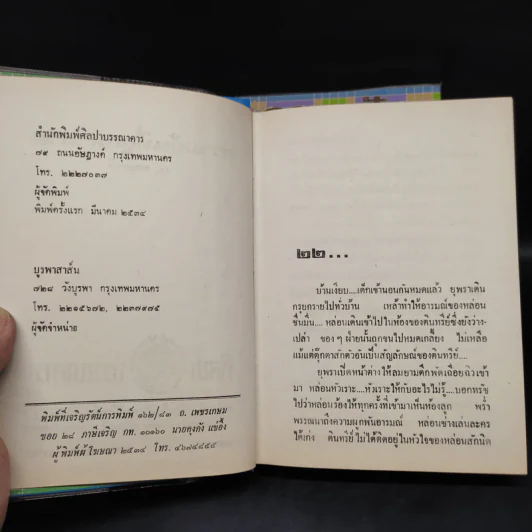 สำนักพิมพ์ศิลปาบรรณาคาร
๗๙ ถนนอัษฎางค์ กรุงเทพมหานคร
โทร. ๒๒๒๗๐๓๗
ผู้จัดพิมพ์
พิมพ์ครั้งแรก มีนาคม ๒๕๓๔
บูรพาสาส์น
๗๒๘ วังบูรพา กรุงเทพมหานคร
โทร. ๒๒๑๕๖๗๒, ๒๒๓๗๙๗๕
ผู้จัดจำหน่าย
พิมพ์ที่เจริญรัตน์การพิมพ์ ๑๖๒/๘๓ ถ. เพชรเกษม
ซอย ๒๘ ภาษีเจริญ กท. ๑๐๑๖๐ นายคุงกัง แซ่อึ้ง
ผู้พิมพ์ผู้โฆษณา ๒๕๓๔ โทร. ๔๖๗๔๘๕๔
๒๒...
บ้านเงียบ....เด็กเข้านอนกันหมดแล้ว ยุพราเดิน
กรุยกรายไปทั่วบ้าน เหล้าทำให้อารมณ์ของหล่อน
ชื่นมื่น.... หล่อนเดินเข้าไปในห้องของดินทรีย์ซึ่งยังว่าง-
เปล่า ของ ๆ ฝ่ายนั้นถูกขนไปหมดเกลี้ยง ไม่เหลือ
แม้แต่ตุ๊กตาสักตัวอันเป็นสัญลักษณ์ของดินทรีย์....
ยุพราเปิดหน้าต่างให้ลมยามดึกพัดเฉื่อยฉิวเข้า
มา หล่อนหัวเราะ....หัวเราะให้กับอะไรไม่รู้....บอกทรัช
ไปว่าหล่อนร้องไห้ทุกครั้งที่เข้ามาเห็นห้องลูก พร่ำ
พรรณนาถึงความผูกพันอารมณ์ หล่อนช่างเล่นละคร
ได้เก่ง ดินทรีย์ไม่ได้ติดอยู่ในหัวใจของหล่อนสักนิด